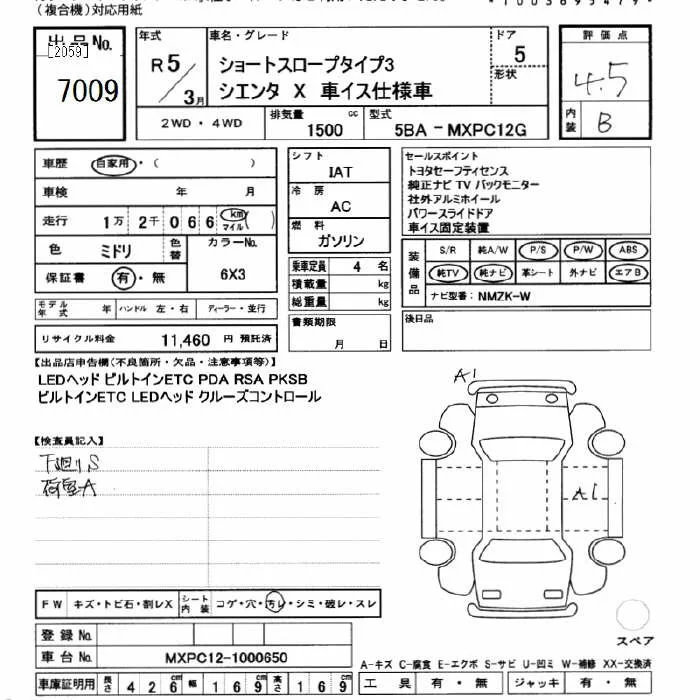 (複合機)対応用紙
*1003695479*
出品No.
[2059]
7009
年式
R5/3月
車名・グレード
ショートスロープタイプ3
シエンタ X 車イス仕様車
ドア
5
形状
2WD・4WD
排気量 1500 cc
型式 5BA-MXPC12G
評価点
4.5
内装 B
車歴 自家用・( )
車検 年 月
走行 1万2千066 km マイル( )
色 ミドリ 色替
カラーNo.
6X3
保証書 有・無
モデル年式 年 ハンドル 左・右 ディーラー・並行
リサイクル料金 11,460 円 預託済
シフト
IAT
冷房
AC
燃料
ガソリン
乗車定員 4 名
積載量 kg
総重量 kg
書類期限
月 日
セールスポイント
トヨタセーフティセンス
純正ナビ TV バックモニター
社外アルミホイール
パワースライドドア
車イス固定装置
装備品
S/R 純A/W P/S P/W ABS
純TV 純ナビ 革シート 外ナビ エアB
ナビ型番: NMZK-W
後日品
【出品店申告欄(不良箇所・欠品・注意事項等)】
LEDヘッド ビルトインETC PDA RSA PKSB
ビルトインETC LEDヘッド クルーズコントロール
【検査員記入】
下廻りS
荷室A
A1
A1
FW キズ・トビ石・割レX
シート内装 コゲ・穴・汚レ・シミ・破レ・スレ
登録No.
車台No. MXPC12-1000650
車庫証明用 長さ 426 cm 幅 169 cm 高さ 169 cm
スペア
A-キズ C-腐食 E-エクボ S-サビ U-凹ミ W-補修 XX-交換済
工具 有・無 ジャッキ 有・無